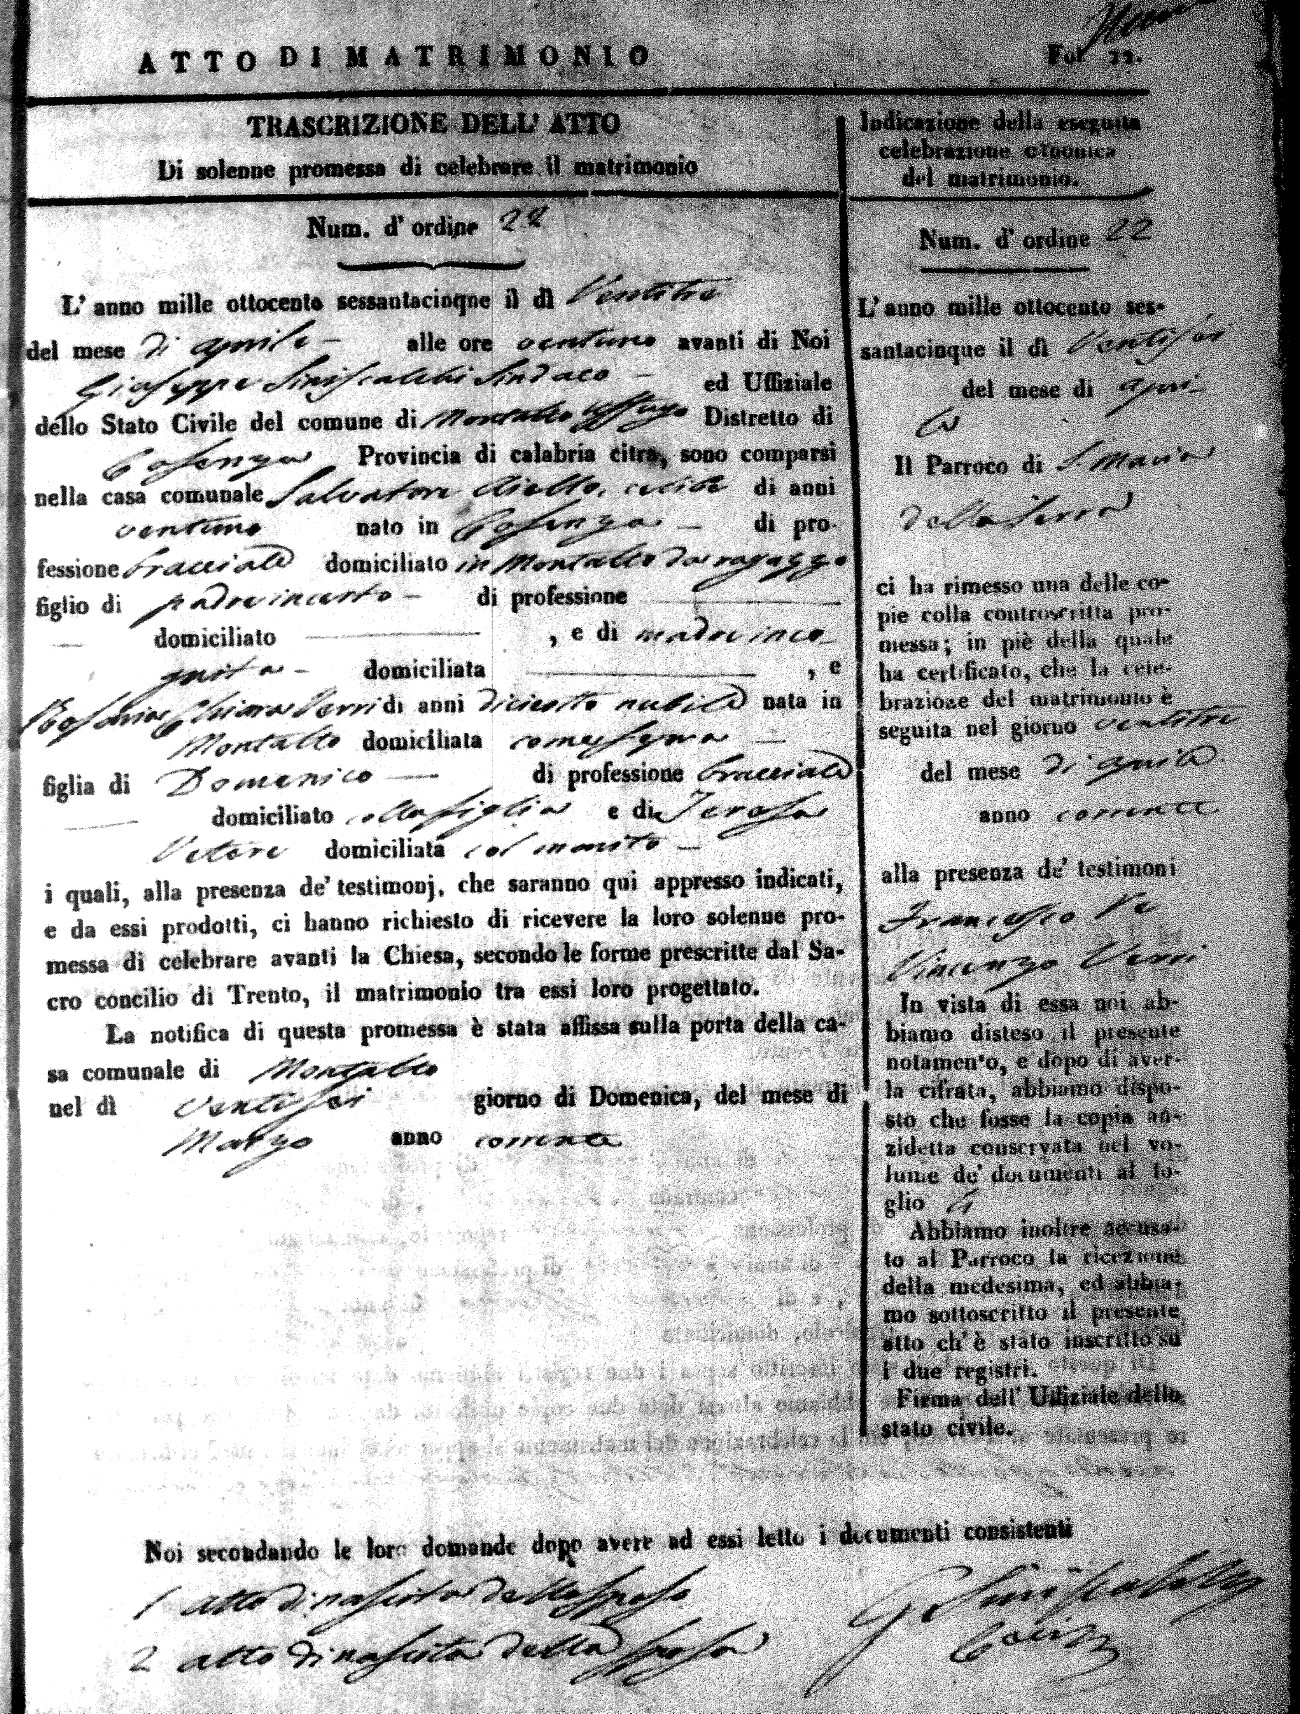 ATTO DI MATRIMONIO
Fol 22.
TRASCRIZIONE DELL' ATTO
Di solenne promessa di celebrare il matrimonio
Num. d' ordine 22
L' anno mille ottocento sessantacinque il dì Ventitre
del mese di aprile - alle ore ventuno avanti di Noi
Giuseppe Siniscalchi Sindaco - ed Uffiziale
dello Stato Civile del comune di Montalto Uffugo Distretto di
Cosenza Provincia di calabria citra, sono comparsi
nella casa comunale Salvatore Aiello, di anni
ventuno nato in Cosenza - di pro-
fessione bracciale domiciliato in Montalto da ragazzo
figlio di padre incerto - di professione
domiciliato , e di madre inco-
gnita - domiciliata , e
Rosaria Chiara Verri di anni diciotto nubile nata in
Montalto domiciliata come sopra -
figlia di Domenico - di professione bracciale
domiciliato colla figlia e di Teresa
Vetere domiciliata col marito -
i quali, alla presenza de' testimonj, che saranno qui appresso indicati,
e da essi prodotti, ci hanno richiesto di ricevere la loro solenne pro-
messa di celebrare avanti la Chiesa, secondo le forme prescritte dal Sa-
cro concilio di Trento, il matrimonio tra essi loro progettato.
La notifica di questa promessa è stata affissa sulla porta della ca-
sa comunale di Montalto
nel dì ventisei giorno di Domenica, del mese di
Marzo anno corrente
Indicazione della eseguita
celebrazione canonica
del matrimonio.
Num. d' ordine 22
L' anno mille ottocento ses-
santacinque il dì Ventisei
del mese di apri-
le
Il Parroco di S. Maria
della Serra
ci ha rimesso una delle co-
pie colla controscritta pro-
messa; in piè della quale
ha certificato, che la cele-
brazione del matrimonio è
seguita nel giorno ventitre
del mese di aprile
anno corrente
alla presenza de' testimoni
Francesco Ve
Vincenzo Verri
In vista di essa noi ab-
biamo disteso il presente
notamento, e dopo di aver-
la cifrata, abbiamo dispo-
sto che fosse la copia an-
zidetta conservata nel vo-
lume de' documenti al fo-
glio 4
Abbiamo inoltre accusa-
to al Parroco la ricezione
della medesima, ed abbia-
mo sottoscritto il presente
atto ch' è stato inscritto su
i due registri.
Firma dell' Uffiziale dello
stato civile.
Noi secondando le loro domande dopo avere ad essi letto i documenti consistenti
1 atto di nascita dello sposo
2 atto di nascita della sposa
G Siniscalchi